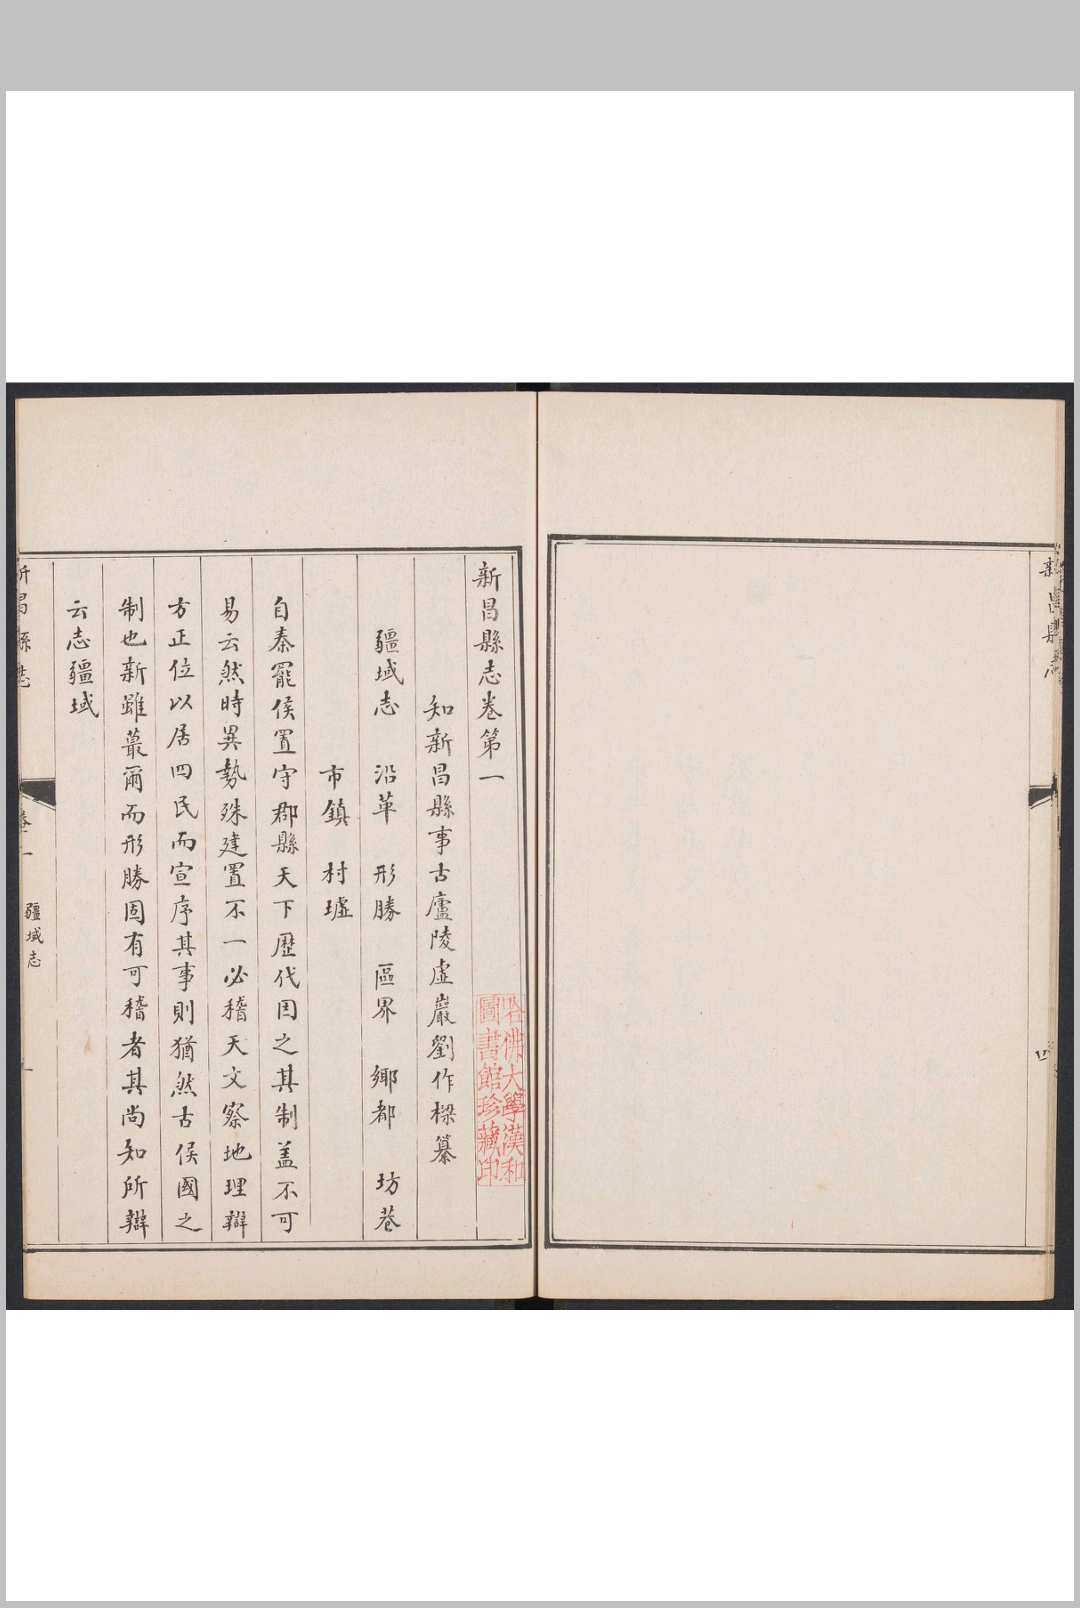 新昌縣志
四
新昌縣志卷第一
哈佛大學漢和
圖書館珍藏印
知新昌縣事古廬陵虛巖劉作樑纂
疆域志 沿革 形勝 區界 鄉都 坊巷
市鎮 村墟
自秦罷侯置守郡縣天下歷代因之其制盖不可
易云然時異勢殊建置不一必稽天文察地理辯
方正位以居四民而宣序其事則猶然古侯國之
制也新雖蕞爾而形勝固有可稽者其尚知所辯
云志疆域
新昌縣志
卷一
疆域志
一